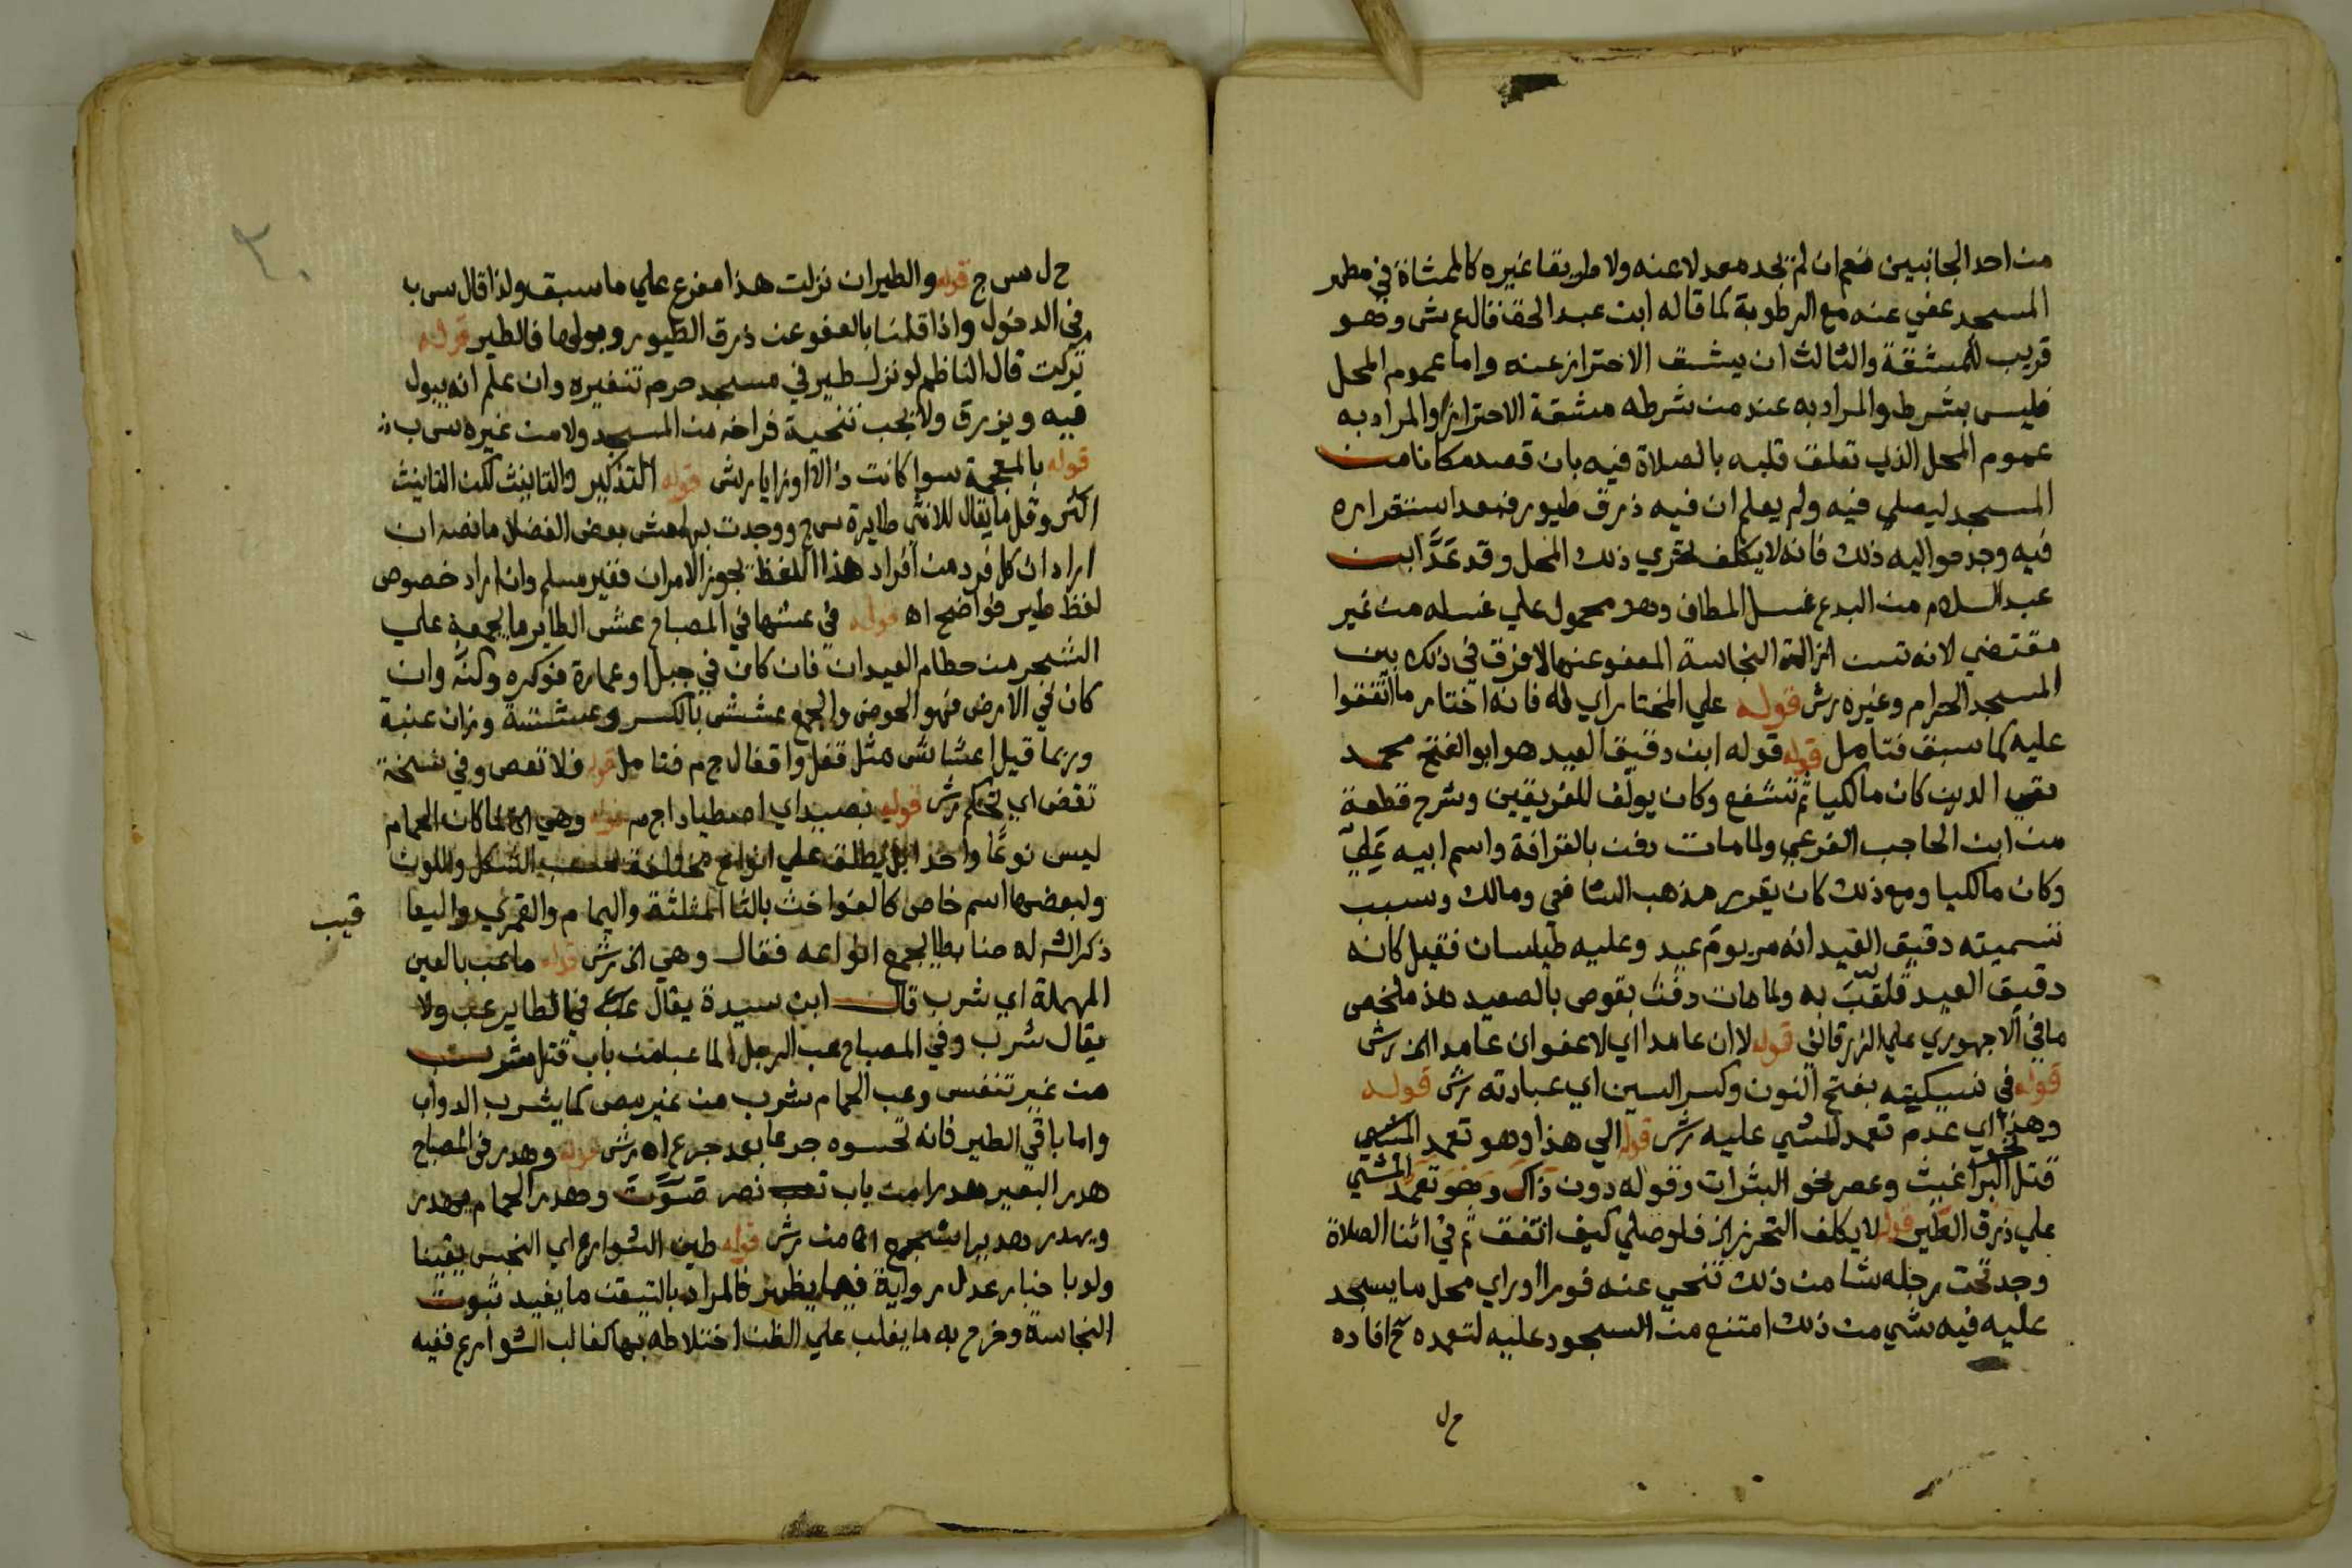 من احد الجانبين نعم ان لم يجد معدلا عنه ولا طريقا غيره كالممشاة في مطهر
المسجد عفي عنه مع الرطوبة كما قاله ابن عبد الحق قال ع ش وهو
قريب للمشقة والثالث ان يشق الاحتراز عنه واما عموم المحل
فليس بشرط والمراد به عند من شرطه مشقة الاحتراز والمراد به
عموم المحل الذي تعلق قلبه بالصلاة فيه بان قصد مكانا من
المسجد ليصلي فيه ولم يعلم ان فيه ذرق طيور فبعد استقراره
فيه وجد حواليه ذلك فانه لا يكلف تحري ذلك المحل وقد عَدَّ ابن
عبد السلام من البدع غسل المطاف وهو محمول علي غسله من غير
مقتضي لانه تسن ازالة النجاسة المعفو عنها لا فرق في ذلك بين
المسجد الحرام وغيره رش قوله علي المختار اي له فانه اختار ما اتفقوا
عليه كما سبق فتامل قوله قوله ابن دقيق العيد هو ابو الفتح محمد
تقي الدين كان مالكيا ثم تشفع وكان يولف للفريقين وشرح قطعة
من ابن الحاجب الفرعي ولما مات دفن بالقرافة واسم ابيه علي
وكان مالكيا ومع ذلك كان يقرر مذهب الشافعي ومالك وسبب
تسميته دقيق العيد انه مر يوم عيد وعليه طيلسان فقيل كانه
دقيق العيد فلقب به ولما مات دفن بقوص بالصعيد هذ ملخص
ما في الاجهوري علي الزرقاني قوله لا ان عامدا اي لا عفو ان عامدا الخ رش
قوله في نسيكيته بفتح النون وكسر السين اي عبادته رش قوله
وهذا اي عدم تعمد المشي عليه رش قوله الي هذا وهو تعمد المشي
قتل نحو البراغيث وعصر نحو البثرات وقوله دون ذاك وهو تعمد المشي
علي ذرق الطير قوله لا يكلف التحرز الخ فلو صلي كيف اتفق ثم في اثنا الصلاة
وجد تحت رجله شا من ذلك تنحي عنه فورا او راي محل ما يسجد
عليه فيه شي من ذلك امتنع من السجود عليه لتعمده ح افاده
ح ل
٢٠
ح ل س ج قوله والطير ان نزلت هذا مفرع علي ما سبق ولذا قال س ب
في الدخول واذا قلنا بالعفو عن ذرق الطيور وبولها فالطير قوله
تركت قال الناظم لو نزل طير في مسجد حرم تنفيره وان علم انه يبول
فيه ويزرق ولا يجب تنحية فراخه من المسجد ولا من غيره س ب
قوله بالمعجمة سوا كانت ذالا او زايا رش قوله التذكير والتانيث لكن التانيث
اكثر وقل ما يقال للانثي طايرة س ج ووجدت بهامش بعض الفضلا ما نصه ان
اراد ان كل فرد من افراد هذا اللفظ يجوز الامران فغير مسلم وان اراد خصوص
لفظ طير فواضح اه قوله في عشها في المصباح عش الطاير ما يجمعه علي
الشجر من حطام العيدان فان كان في جبل او عمارة فوكره وكنه وان
كان في الارض فهو الحوص والجمع عشش بالكسر وعششة وزان عنبة
وربما قيل اعشاش مثل قفل واقفال ج م فتامل قوله فلا تعص وفي نسخة
تقض اي تحكم رش قوله بصيد اي اصطياد اج م قوله وهي الخ لما كان الحمام
ليس نوعا واحدا بل يطلق علي انواع مختلفة بحسب الشكل واللون
ولبعضها اسم خاص كالفواخت بالثا المثلثة واليمام والقمري واليعا
قيب
ذكر الش له ضابطا يجمع انواعه فقال وهي الخ رش قوله ما عب بالعين
المهملة اي شرب قال ابن سيدة يقال في الطاير عب ولا
يقال شرب وفي المصباح عب الرجل الما عبا من باب قتل شرب
من غير تنفس وعب الحمام شرب من غير مص كما يشرب الدواب
واما باقي الطير فانه تحسوه جرعا بعد جرع اه رش قوله وهدر في المصباح
هدر البعير هدرا من باب نصر صَوَّتَ وهدر الحمام يهدر
ويهدر هديرا سجع اه من رش قوله طين الشوارع اي النجس يقينا
ولو باخبار عدل رواية فيما يظهر فالمراد بالتيقن ما يفيد ثبوت
النجاسة وخرج به ما يغلب علي الظن اختلاطه بها كغالب الشوارع ففيه